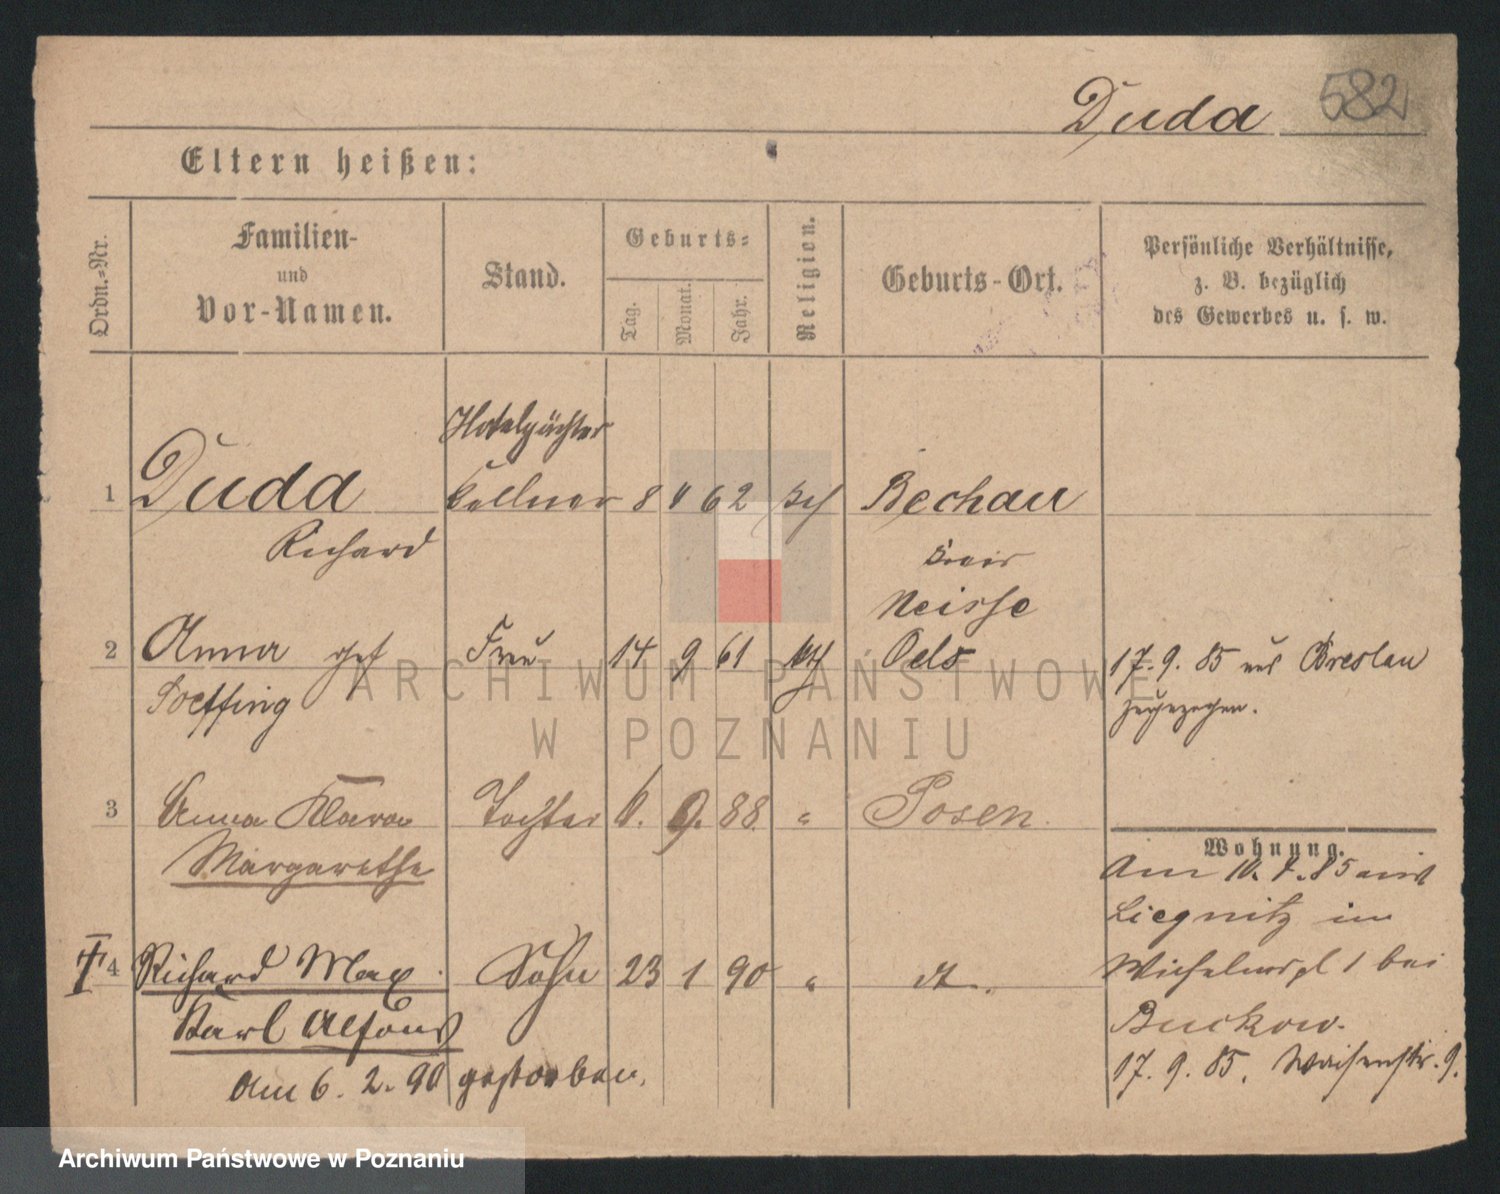 Duda 582
Eltern heißen:
Ordn.-Nr.
Familien-
und
Vor-Namen.
Stand.
Geburts-
Tag. Monat. Jahr.
Religion.
Geburts-Ort.
Persönliche Verhältnisse,
z. B. bezüglich
des Gewerbes u. s. w.
Hotelpächter
1 Duda Kellner 8 4 62 kth Bechau
Richard
Kreis
Neisse
2 Anna geb Frau 14 9 61 kth Oels 17. 9. 85 aus Breslau
zugezogen.
ARCHIWUM PAŃSTWOWE
W POZNANIU
3 Anna Klara Tochter 9. 88 " Posen
Margarethe
Wohnung.
Am 10. 4. 85 aus
Liegnitz in
4 Richard Max Sohn 23 1 90 " dt. Wilhelmspl 1 bei
Karl Alfons Buckow.
am 6. 2. 90 gestorben. 17. 9. 85. Waisenstr. 9.
Archiwum Państwowe w Poznaniu